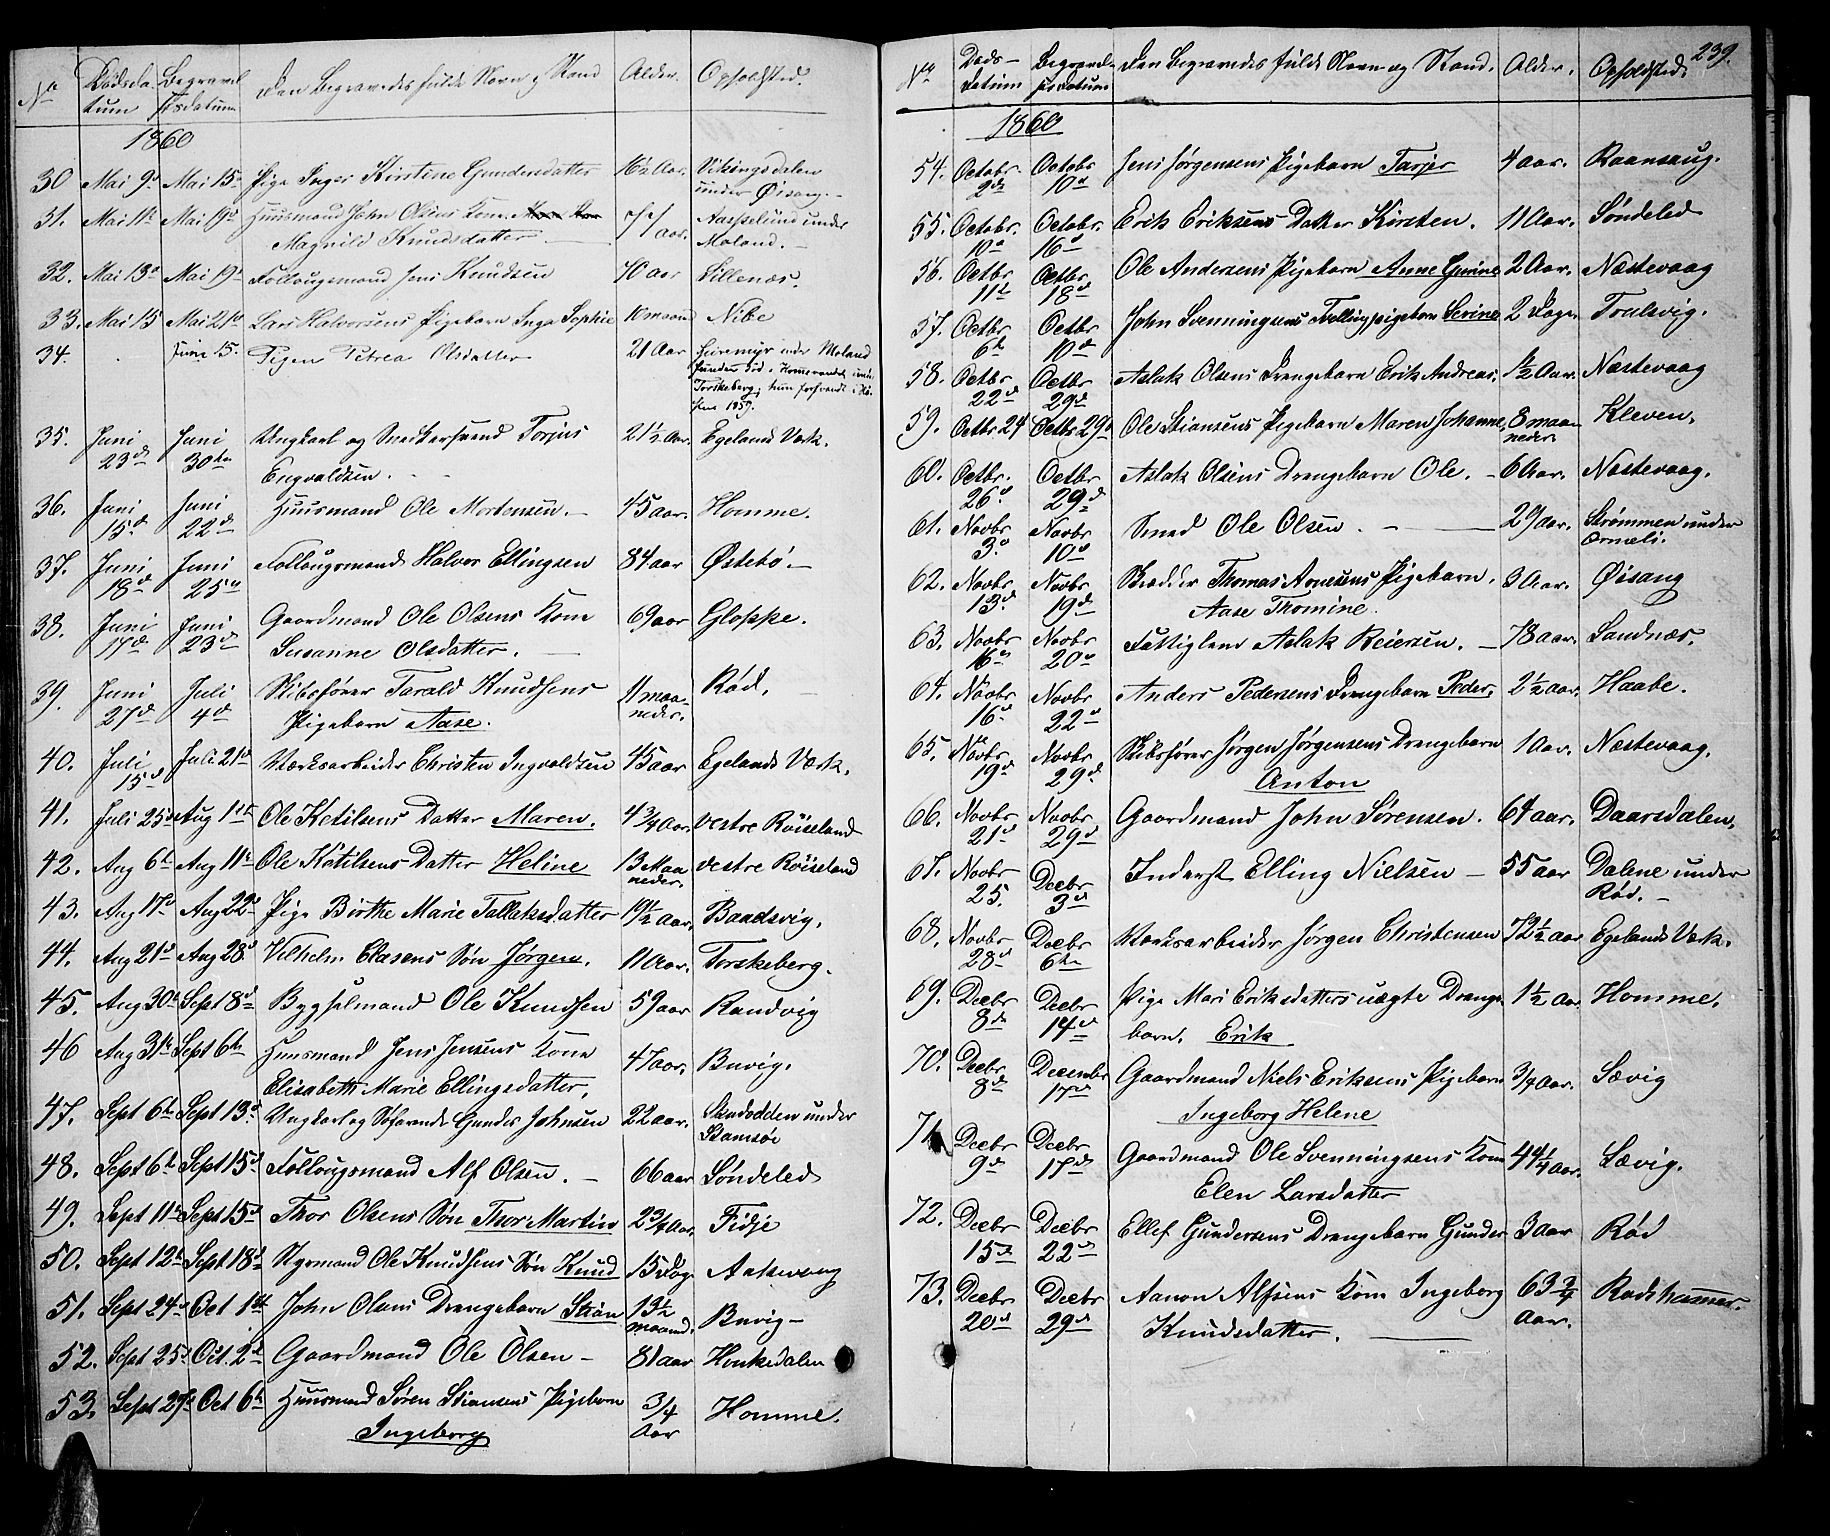 No Dødsdatum Begravelsesdatum Den Begravedes fulde Navn og Stand Alder. Opholdsted.
1860
30 Mai 9d Mai 15d Pige Inger Kirstine Gundersdatter 16½ Aar. Vikingsdalen under Øisang.
31. Mai 11te Mai 19d Huusmand John Olsens Kone Magnild Knudsdatter aar. under Moland.
32. Mai 13d Mai 19d Follougsmand Jens Knudsen 70 aar Lillenæs.
33. Mai 15 Mai 21d Lars Halvorsens Pigebarn Inga Sophie 10 maaned Nibe
34. Juni 15. Pigen Petrea Olsdatter 21 Aar Furemyr under Moland
funden død i
Torskeberg, hun forsvandt i
1859.
35. Juni 23d Juni 30te Ungkarl og Snedkersvend Torjus Engvaldsen. 21½ Aar. Egelands Værk.
36. Juni 15d Juni 22d Huusmand Ole Mortensen. 45 aar. Homme.
37. Juni 18d Juni 25d Follougsmand Halvor Ellingsen 84 aar Østebø.
38. Juni 17d Juni 23d Gaardmand Ole Olsens Kone Susanne Olsdatter. 69 aar Gloppe.
39. Juni 27d Juli 4d Skibsfører Tarald Knudsens Pigebarn Aase. 11 maaneder. Rød.
40. Juli 15d Juli 21d Værksarbeider Christen Ingvaldsen 45 aar Egelands Værk.
41. Juli 25d Aug 1ste Ole Ketilsens Datter Maren. 4¾ Aar. vestre Röiseland
42. Aug 6te Aug 11te Ole Ketilsens Datter Heline 13 Maaneder. vestre Röiseland
43. Aug 17d Aug 22d Pige Birthe Marie Tallaksdatter 19½ Aar. Baadsvig.
44. Aug 21d Aug 28d Vilhelm Clasens Søn Jørgen. 11 Aar. Torskeberg.
45. Aug 30te Sept 8d Bygselmand Ole Knudsen 59 aar Randvig
46 Aug 31te Sept 6te Huusmand Jens Jensens Kone Elisabeth Marie Ellingsdatter. 47 aar. Buvig.
47. Sept 6te Sept 13d Ungkarl og Søfarende Gunder Johnsen 22 aar. under Stamsöe
48. Sept 6te Sept 15d Follougsmand Alf Olsen. 66 aar Søndeled
49. Sept 11te Sept 15d Thor Olsens Søn Thor Martin 2¾ Aar. Fidje
50. Sept 12te Sept 18d Ole Knudsens Søn Knud 15 Dage Aakevaag
51. Sept 24d Oct 1ste John Olsens Drengebarn Stian 13½ maaned. Buvig
52. Sept 25d Oct. 2d Gaardmand Ole Olsen 81 aar Honkedalen
53. Sept 29d Oct 6te Huusmand Søren Stiansens Pigebarn Ingeborg 3/4 Aar Homme.
239.
No Døds-datum Begravelsesdatum Den Begravedes fulde Navn og Stand. Alder. Opholdsted
1860
54. Octobr 2d Octobr 10d Jens Jørgensens Pigebarn Tarjer 4 aar. Raansaug.
55. Octobr. 10d Octobr. 16d Erik Eriksens Datter Kirsten. 11 Aar. Søndeled
56. Octbr 11te Octbr 18d Ole Andersens Pigebarn Anne Gurine 2 Aar. Næstevaag
57. Octbr 6te Octbr 10d John Svenningsens Tvillingpigebarn Serine 2 Dage. Trulsvig.
58. Octbr 22d Octbr 29d Aslak Olsens Drengebarn Erik Andreas. ½ Aar. Næstevaag
59. Octbr 24 Octbr 29d Ole Stiansens Pigebarn Maren Johanne 8 maaneder Kleven.
60. Octbr. 26d Octbr 29d Aslak Olsens Drengebarn Ole. 6 Aar. Næstevaag.
61. Novbr 3d Novbr 10d Smed Ole Olsen. 29 aar. Strømmen under Ormeli.
62. Novbr 13d Novbr 19d Thomas Arnesens Pigebarn. Aase Thomine. 3 Aar. Øisang
63. Novbr 16d Novbr 20d Fattiglem Aslak Reiersen. 78 aar. Sandnæs.
64. Novbr 16d Novbr 22d Anders Pedersens Drengebarn Peder. 2½ aar. Haabe.
65. Novbr 19d Novbr 29d Skibsfører Jørgen Jørgensens Drengebarn Anton 1 Aar. Næstevaag.
66. Novbr 21d Novbr 29d Gaardmand John Sørensen. 64 aar. Daarsdalen.
67. Novbr 25. Decbr 3d Inderst Elling Nielsen 55 aar Dalene under Rød.
68. Novbr 28d Decbr 6te Værksarbeider Jørgen Christensen 72½ aar Egelands Værk.
69. Decbr 8de Decbr 14d Pige Mari Eriksdatters uægte Drengebarn. Erik 1½ aar Homme.
70. Decbr 8d Decembr 17d Gaardmand Niels Eriksens Pigebarn Ingeborg Helene 3/4 Aar. Sævig
71. Decbr 9d Decbr 17d Gaardmand Ole Svenningsens Kone Elen Larsdatter 44¼ Aar. Sævig.
72. Decbr 15d Decbr 22d Ellef Gundersens Drengebarn Gunder 3 aar Rød
73. Decbr 20d Decbr 29d Aanon Alfsens Kone Ingeborg Knudsdatter. 63¾ Aar. Rødshammer.